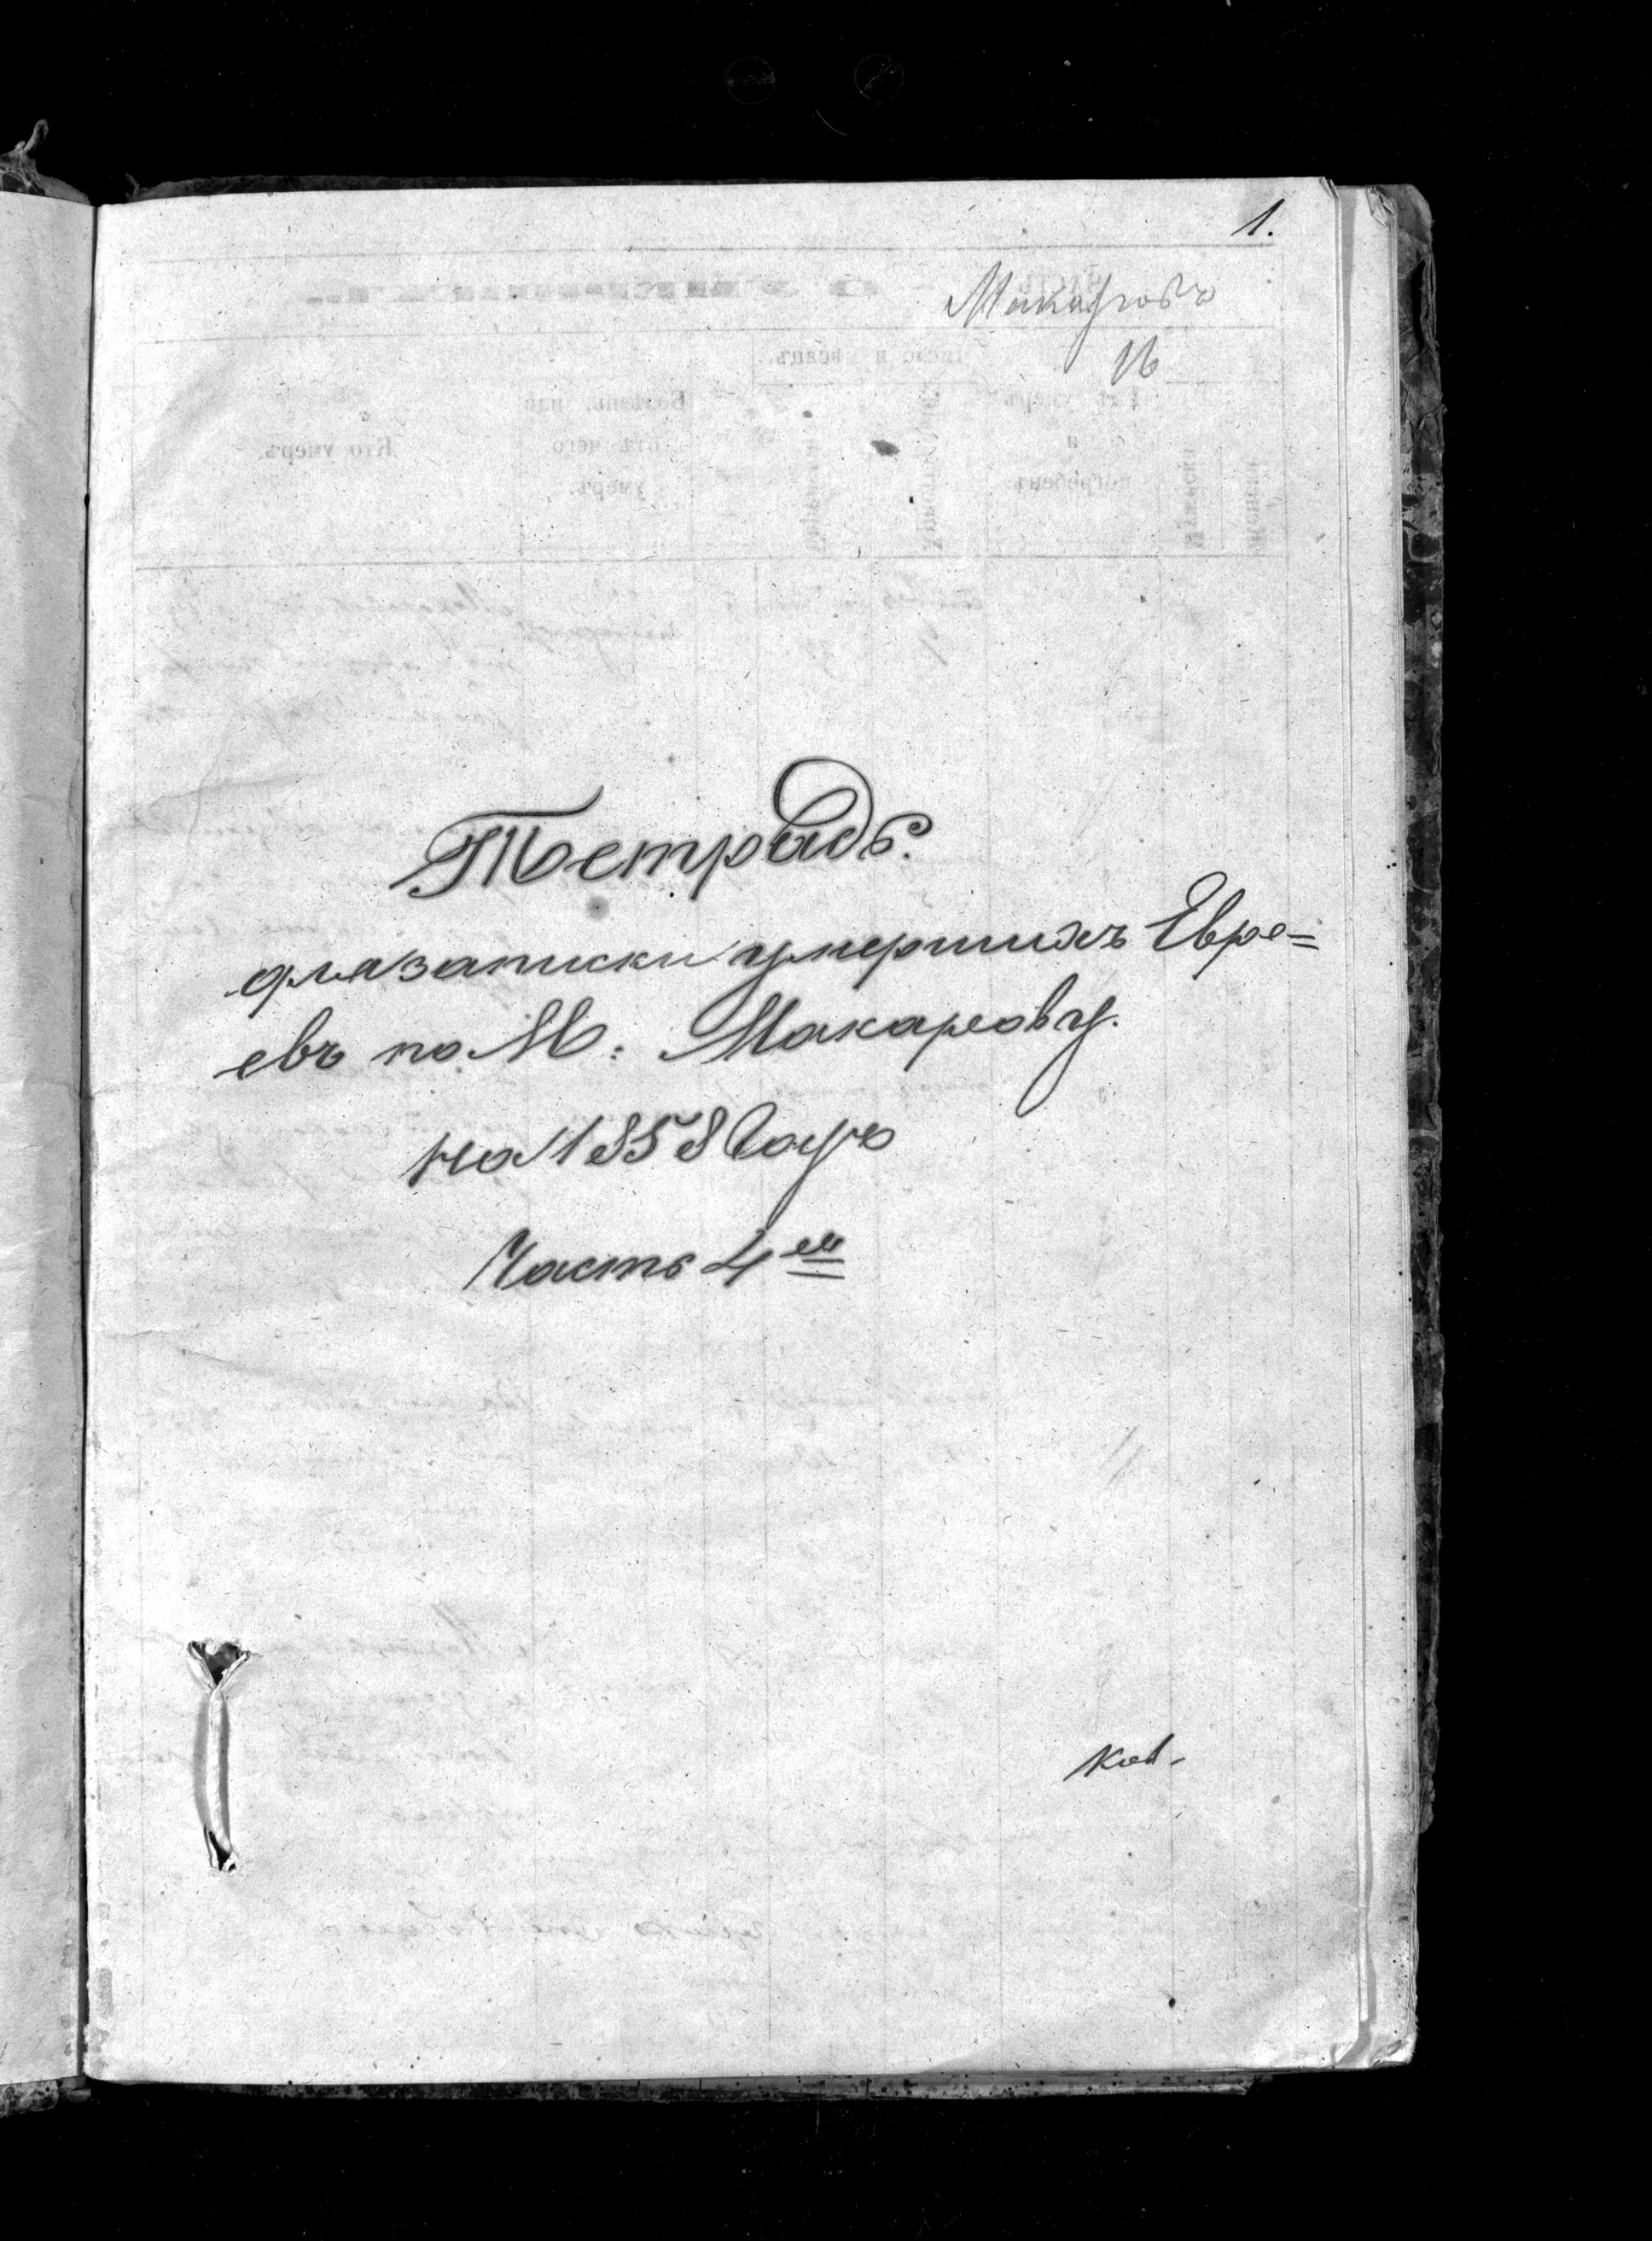 1.
Макаровъ
16
Тетрадь.
для записки умершихъ Евре=
евъ по М: Макарову.
на 1858 Годъ
Часть 4ая